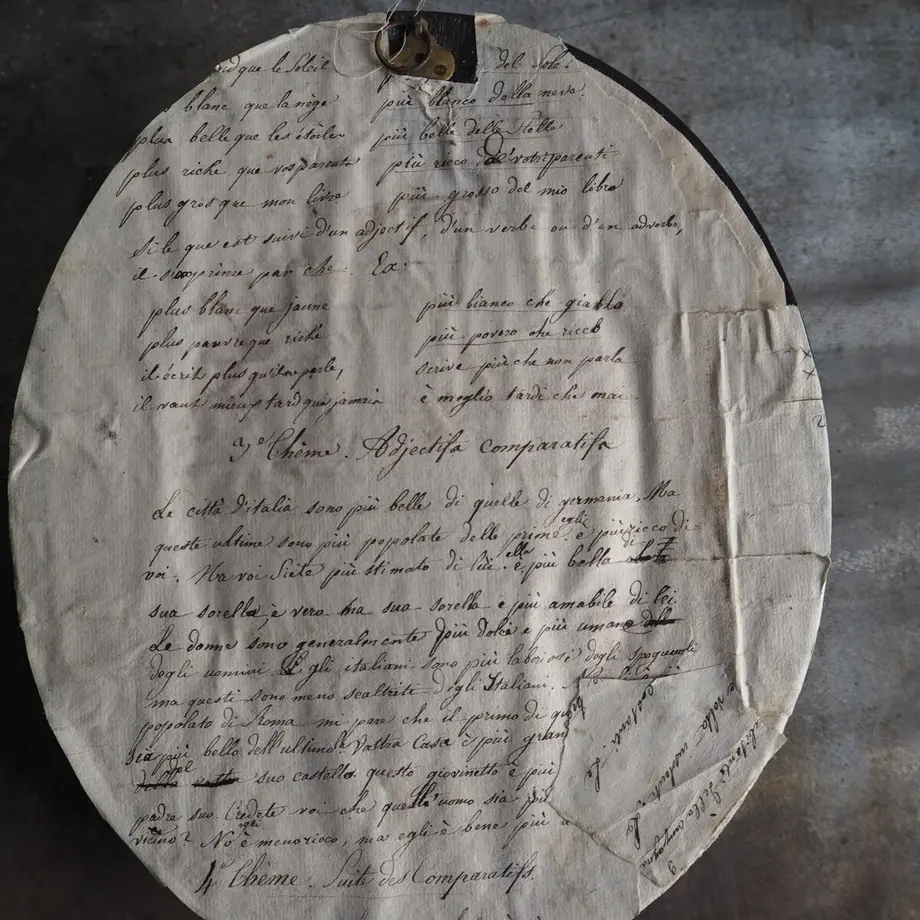 que le Soleil del Sole.
blanc que la nège più blanco della neve.
plus belle que les étoiles più belle delle stelle
plus riche que vos parents più ricco de' votri parenti
plus gros que mon livre più grosso del mio libro
Si le que est suivi d'un adjectif, d'un verbe ou d'un adverbe,
il s'exprime par che. Ex:
plus blanc que jaune più bianco che giallo
plus pauvre que riche più povero che ricco
il écrit plus qu'il ne parle, scrive più che non parla
il vaut mieux tard que jamais è meglio tardi che mai
3e Thème. Adjectifs comparatifs
Le città d'italia sono più belle di quelle di germania. Ma
queste ultime sono più popolate delle prime. egli è più ricco di
voi. Ma voi siete più stimato di lui. ella è più bella di
sua sorella, è vero. ma sua sorella e più amabile di lei
Le donne sono generalmente più dolci e più umane
degli uomini. gli italiani sono più laboriosi degli Spagnuoli
ma questi sono meno scaltriti degli Italiani.
popolato di Roma mi pare che il primo di
sia più bello dell'ultimo. Vostra Casa è più gran
del suo castello. questo giovinetto è più
padre suo. Credete voi che quell'uomo sia più
vicino? No è meno ricco, ma egli è bene più
4e Thème. Suite des Comparatifs.